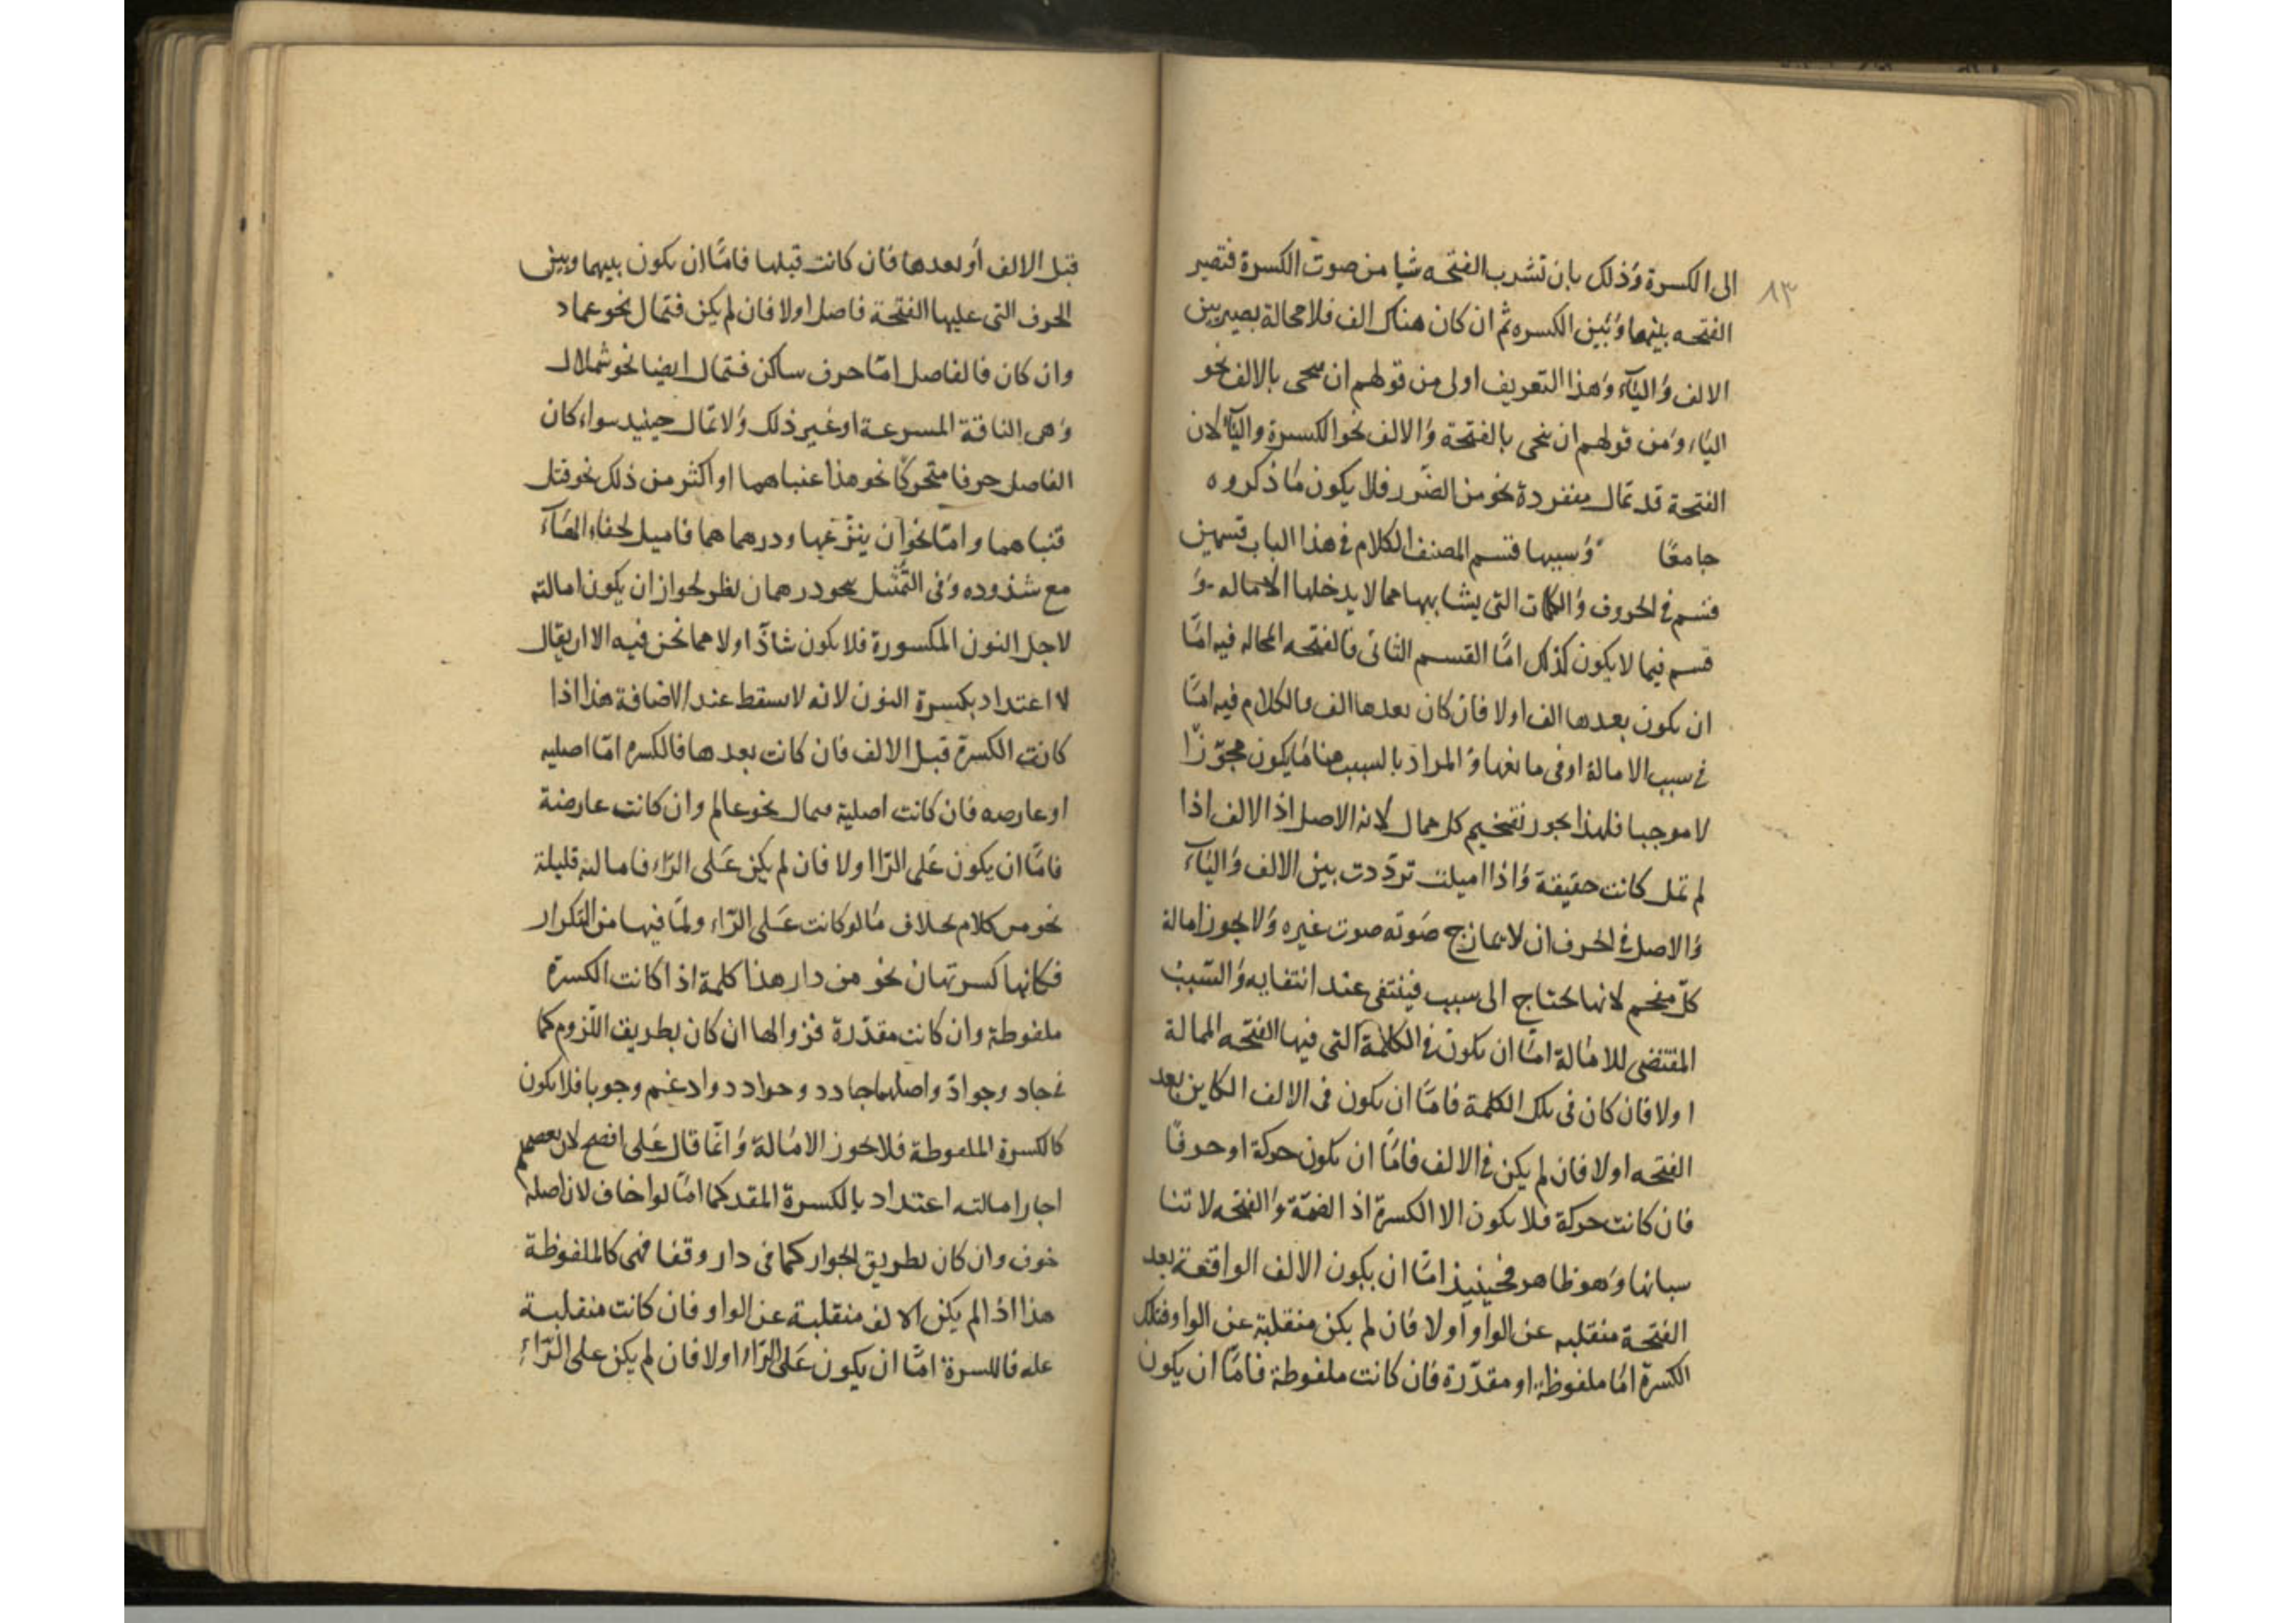 ٨٣
الى الكسرة وذلك بان تشرب الفتحه شيا من صوت الكسرة فتصير
الفتحه بينها وبين الكسره ثم ان كان هناك الف فلا محالة يصير بين
الالف والياء وهذا التعريف اولى من قولهم ان ينحى بالالف نحو
الياء ومن قولهم ان ينحى بالفتحة والالف نحو الكسرة والياء لان
الفتحة قد تمال منفردة نحو من الضرر فلا يكون ما ذكروه
جامعا وسببها قسم المصنف الكلام في هذا الباب قسمين
قسم في الحروف والكلمات التي يشابهها مما لا يدخلها الاماله و
قسم فيما لا يكون كذلك اما القسم الثاني فالفتحه الممالة فيه اما
ان يكون بعدها الف اولا فان كان بعدها الف فالكلام فيه اما
في سبب الامالة او في مانعها والمراد بالسبب هنا ما يكون مجوزا
لا موجبا فلهذا يجوز تفخيم كل ممال لانه الاصل اذ الالف اذا
لم تمل كانت حقيقة واذا اميلت ترددت بين الالف والياء
والاصل في الحرف ان لا يمازج صوته صوت غيره ولا يجوز امالة
كل مفخم لانها تحتاج الى سبب فينتفى عند انتفايه والسبب
المقتضى للامالة اما ان يكون في الكلمة التي فيها الفتحه الممالة
اولا فان كان في تلك الكلمة فاما ان يكون في الالف الكاين بعد
الفتحه اولا فان لم يكن في الالف فاما ان يكون حركة او حرفا
فان كانت حركة فلا يكون الا الكسرة اذ الضمة والفتحه لا تنا
سبانها وهو ظاهر فحينيذ اما ان يكون الالف الواقعة بعد
الفتحة منقلبه عن الواو اولا فان لم يكن منقلبة عن الواو فتلك
الكسرة اما ملفوظة او مقدرة فان كانت ملفوظة فاما ان يكون
قبل الالف او بعدها فان كانت قبلها فاما ان يكون بينها وبين
الحرف التي عليها الفتحة فاصل اولا فان لم يكن فتمال نحو عماد
وان كان فالفاصل اما حرف ساكن فتمال ايضا نحو شملال
وهي الناقة المسرعة او غير ذلك ولا تمال حينيذ سواء كان
الفاصل حرفا متحركا نحو هذا عنباهما او اكثر من ذلك نحو فتل
قنباهما واما نحو ان ينزعها ودرهماهما فاميل لخفاء الهاء
مع شذوده وفي التمثيل بنحو درهمان نظر لجواز ان يكون امالته
لاجل النون المكسورة فلا يكون شاذا ولا مما نحن فيه الا ان يقال
لا اعتداد بكسرة النون لانه لا يسقط عند الاضافة هذا اذا
كانت الكسرة قبل الالف فان كانت بعدها فالكسره اما اصليه
او عارضه فان كانت اصلية فيمال نحو عالم وان كانت عارضة
فاما ان يكون على الرا اولا فان لم يكن على الراء فامالته قليلة
نحو من كلام بخلاف ما لو كانت على الراء ولما فيها من التكرار
فكانها كسرتان نحو من دار هذا كلمة اذا كانت الكسرة
ملفوظة وان كانت مقدرة فزوالها ان كان بطريق اللزوم كما
في جاد وجواد واصلهما جادد وجوادد وادغم وجوبا فلا يكون
كالكسرة الملفوظة فلا يجوز الامالة وانما قال على افصح لان بعضهم
اجاز امالته اعتداد بالكسرة المقدر كما امالوا خاف لان اصله
خوف وان كان بطريق الجواز كما في دار وقفا فهي كالملفوظة
هذا اذا لم يكن الالف منقلبة عن الواو فان كانت منقلبة
عنه فالكسرة اما ان يكون على الراء اولا فان لم يكن على الراء